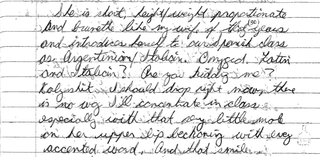 She is short, height/weight proportionate
and brunette like my wife of three years
and introduces herself to our Spanish class
as Argentinian/Italian. Omygod. Latin
and Italian? Are you kidding me?
I should drop right now, there
is no way I'll concentrate in class
especially with that sexy little mole
on her upper lip beckoning with every
accented word. And that smile.